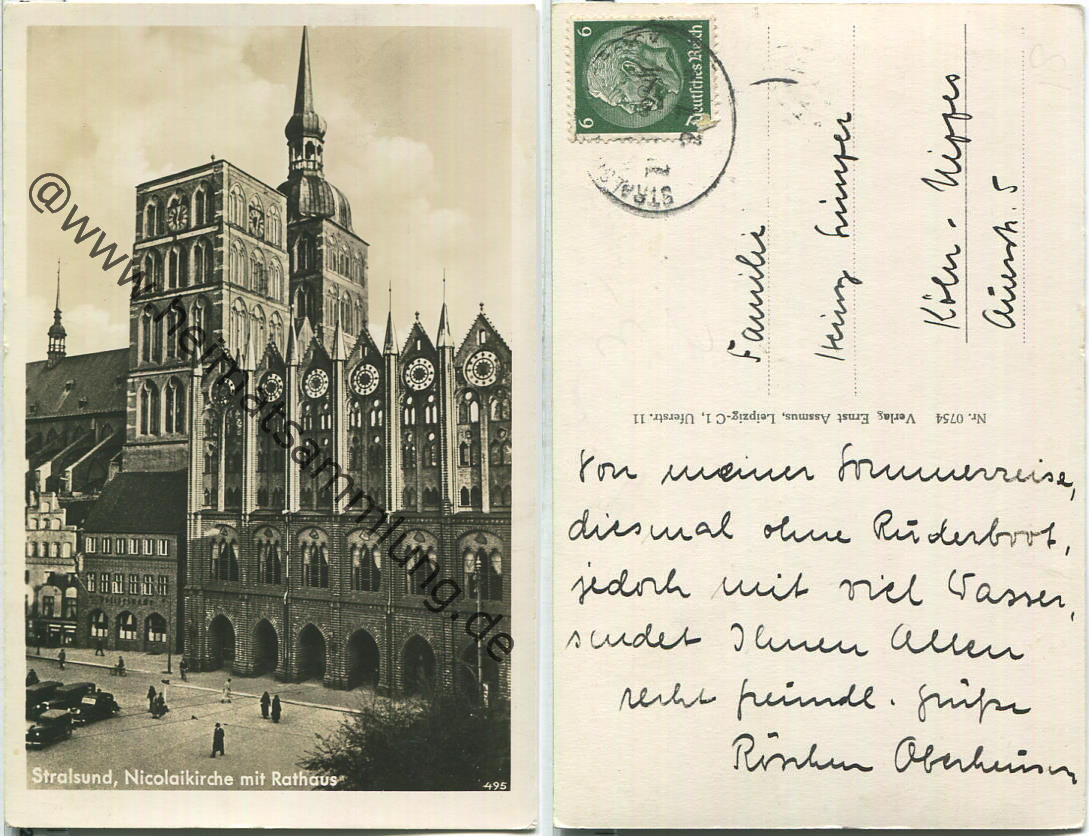 Stralsund, Nicolaikirche mit Rathaus
495
@www.heimatsammlung.de
6 Deutsches Reich 6
STRALS
Familie
Heinz
Köln-Nippes
5
Nr. 0754 Verlag Ernst Assmus, Leipzig-C 1, Uferstr. 11
Von meiner Sommerreise,
diesmal ohne Ruderboot,
jedoch mit viel Wasser,
sendet Ihnen Allen
recht freundl. Grüße
Röschen Oberheuser